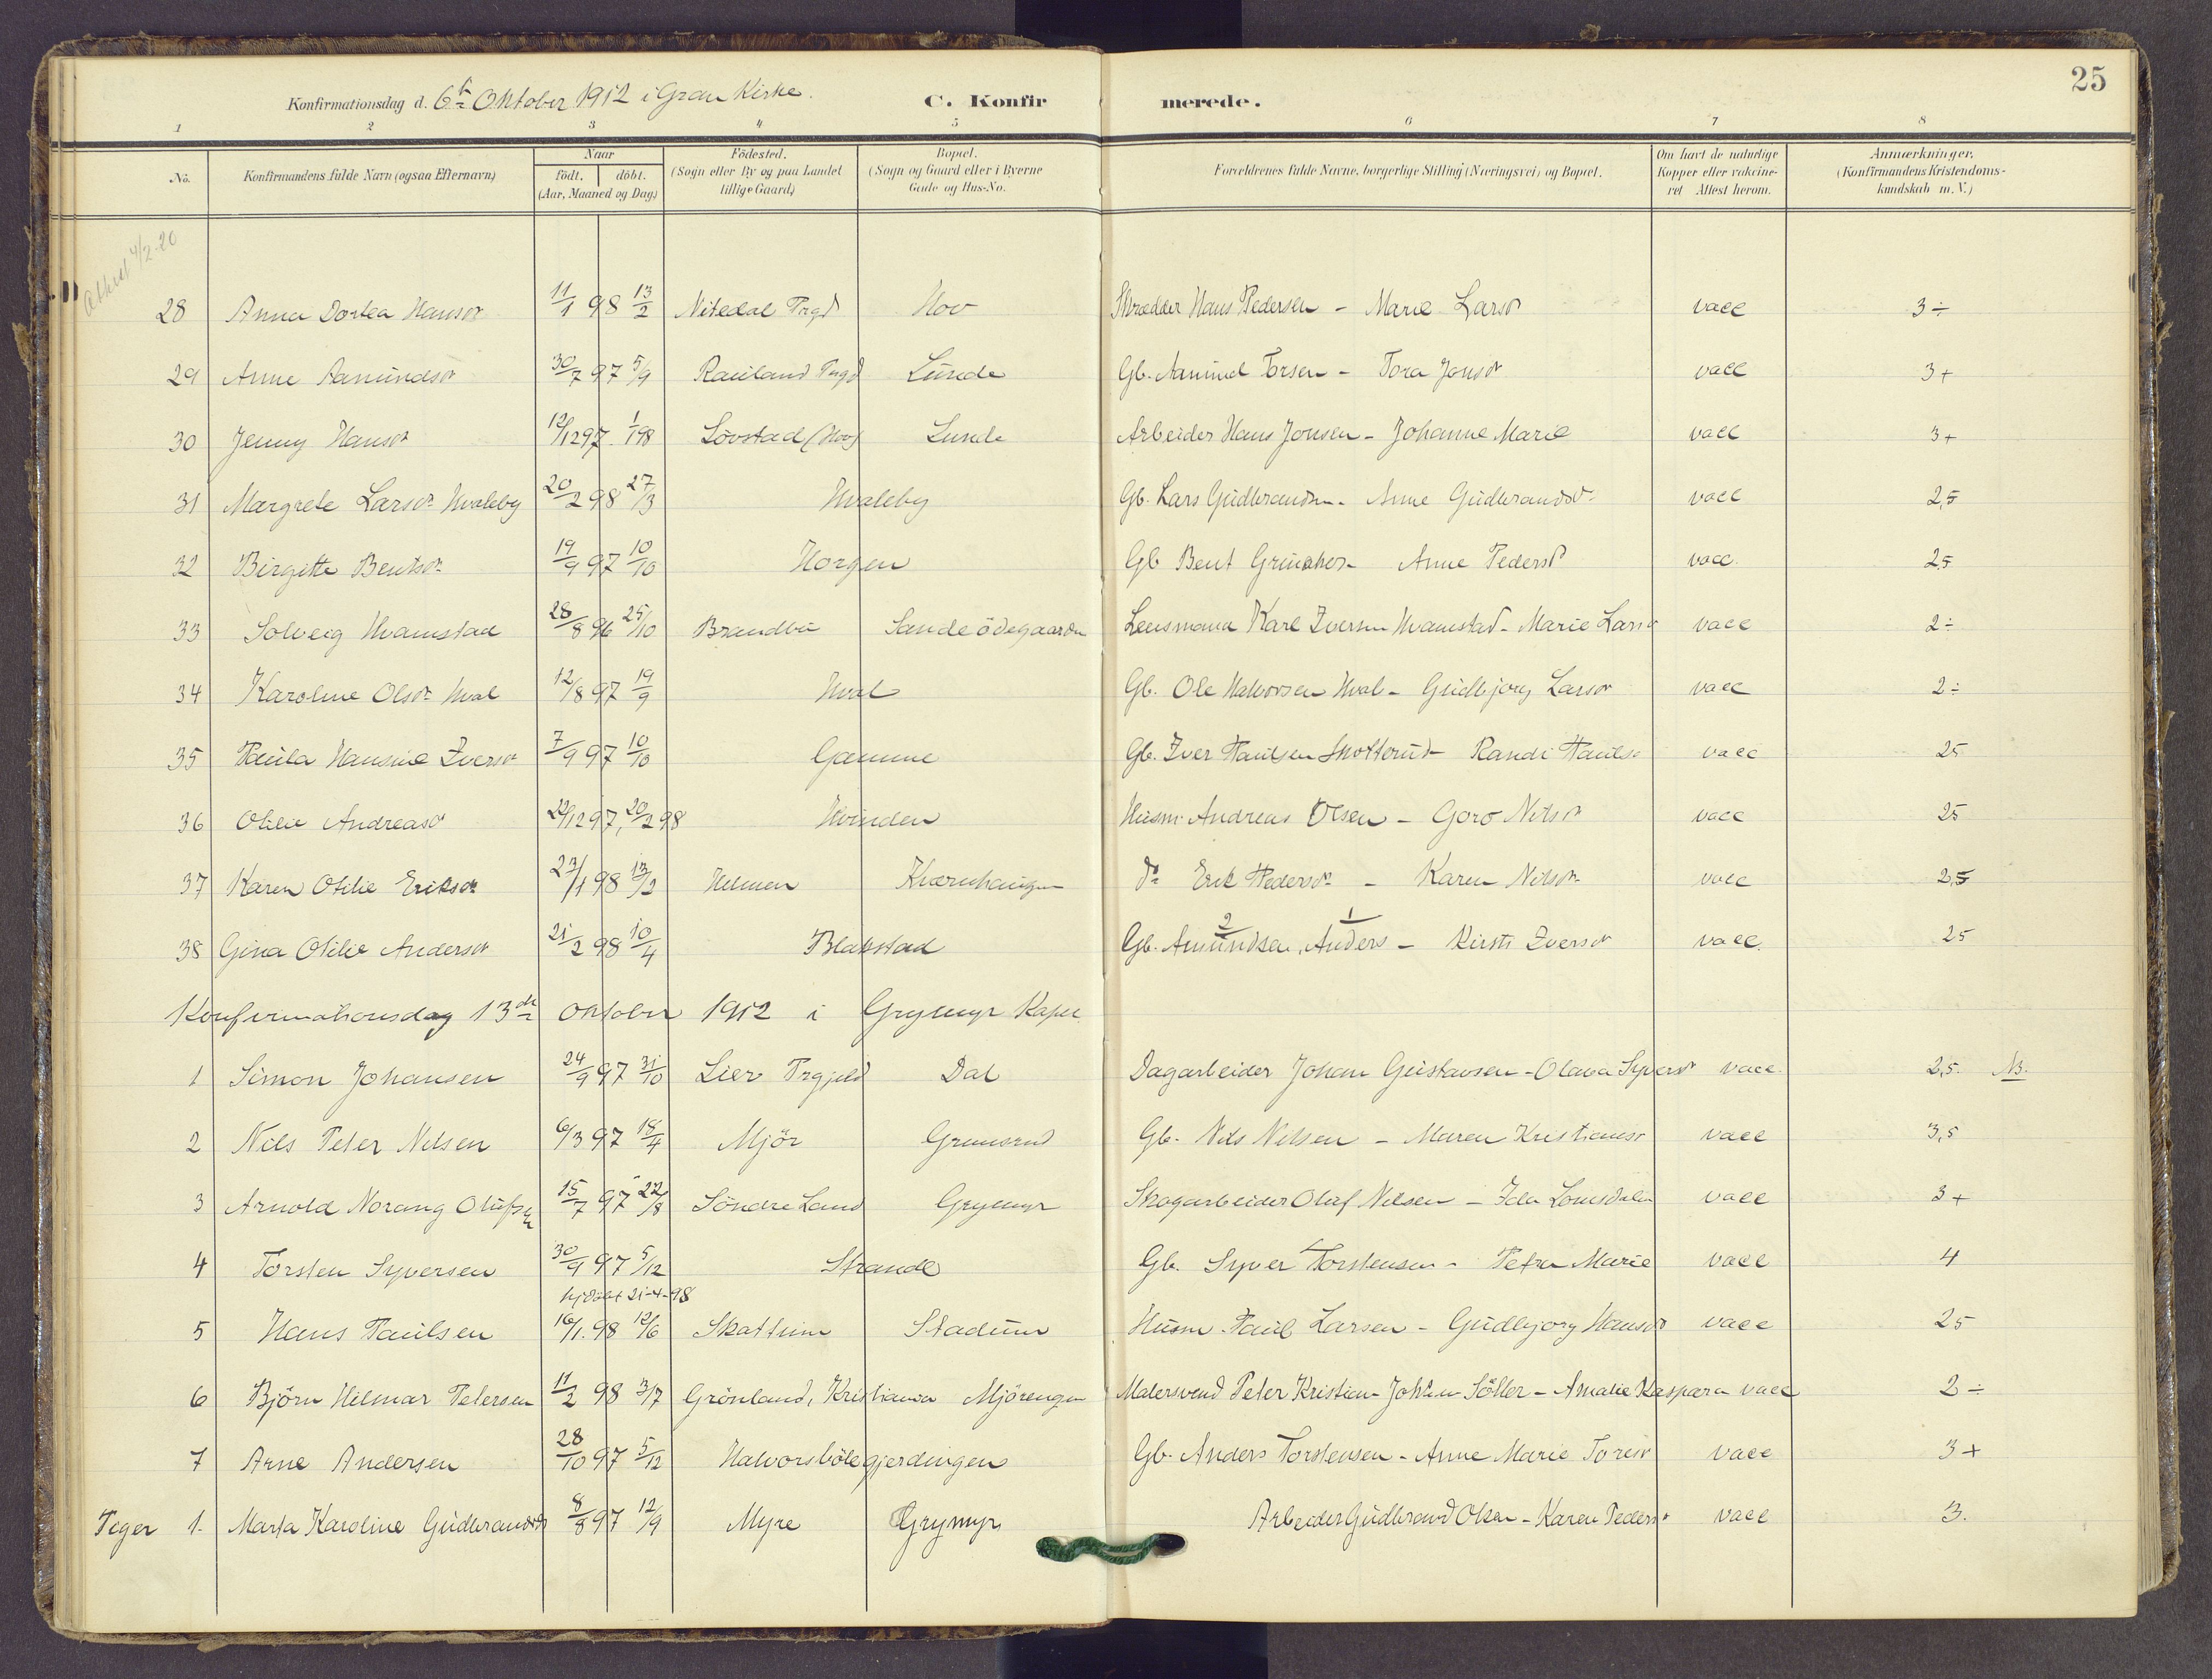 25
Konfirmationsdag d. 6te Oktober 1912 i Gran Kirke.
C. Konfirmerede.
1 2 3 4 5 6 7 8
No. Konfirmandens fulde Navn (ogsaa Efternavn) Naar födt. döbt. (Aar, Maaned og Dag) Födested. (Sogn eller By og paa Landet tillige Gaard) Bopæl. (Sogn og Gaard eller i Byerne Gade og Hus-No. Forældrenes fulde Navne, borgerlige Stilling (Næringsvei) og Bopæl. Om havt de naturlige Kopper eller vakcineret Attest herom. Anmærkninger. (Konfirmandens Kristendomskundskab m. V.)
4/2-20
28 Anna Dortea Hansdr 11/1 98 13/2 Nitedal Prgd Hov Skrædder Hans Pedersen - Marie Larsdr vacc 3÷
29 Anne Aamundsdr 30/7 97 5/9 Rauland Prgd Lunde Gb. Aamund Torsen - Tora Jonsdr vacc 3+
30 Jenny Hansdr 12/12 97 1/1 98 Lövstad (Hov) Lunde Arbeider Hans Jonsen - Johanne Marie vacc 3+
31 Margrete Larsdr Hvaleby 20/2 98 27/3 Hvaleby Gb. Lars Gudbrandsen - Anne Gudbrandsdr vacc 2,5
32 Birgitte Bentsdr 19/9 97 10/10 Horgen Gb Bent - Anne Pedersdr vacc. 2,5
33 Solveig Hvamstad 28/8 96 25/10 Brandbu Sande ödegaarden Lensmand Karl Iversen Hvamstad - Marie Larsdr vacc 2÷
34 Karoline Olsdr Hval 12/8 97 19/9 Hval Gb. Ole Halvorsen Hval - Gudbjorg Larsdr vacc 2÷
35 Paula Hansine Iversdr 7/9 97 10/10 Gamme Gb. Iver Paulsen Skotterud - Randi Paulsdr vacc 25
36 Olilie Andreasdr 22/12 97, 20/2 98 Hvinden Husm. Andreas Olsen - Goro Nilsdr vacc 25
37 Karen Otilie Eriksdr 23/1 98 13/2 Helmen Kværnhaugen do Erik Pedersen - Karen Nilsdr vacc 2,5
38 Gina Otilie Andersdr 21/2 98 10/4 Blakstad Gb. Amundsen 2, Anders 1 - Kirsti Iversdr vacc. 25
Konfirmationsdag 13de Oktober 1912 i Grymyr Kapel
1 Simon Johansen 24/9 97 31/10 Lier Prgjeld Dal Dagarbeider Johan Gustavsen - Olava Syversdr vacc. 2,5. NB.
2 Nils Peter Nilsen 6/3 97 18/4 Mjör Grimsrud Gb. Nils Nilsen - Maren Kristiansdr vacc 3,5
3 Arnold Norang Olufsen 15/7 97 22/8 Söndre Land Grymyr Skogarbeider Oluf Nilsen - Ida Lomsdalen vacc 3+
4 Torsten Syversen 30/9 97 5/12 Strande Gb. Syver Torstensen - Petra Marie vacc 4
hjdöbt 21-4-98
5 Hans Paulsen 16/1. 98 12/6 Skattum Stadum Husm. Paul Larsen - Gudbjorg Hansdr vacc 25
6 Björn Hilmar Petersen 11/2 98 3/7 Grönland, Kristiania Mjörengen Malersvend Peter Kristian Johan Söller - Amalie Kaspara vacc 2÷
7 Arne Andersen 28/10 97 5/12 Halvorsbölegjerdingen Gb. Anders Torstensen - Anne Marie Toresdr vacc 3+
Piger 1. Marta Karoline Gudbrandsdr 8/8 97 12/9 Myre Grymyr Arbeider Gudbrand Olsen - Karen Pedersdr vacc 3.